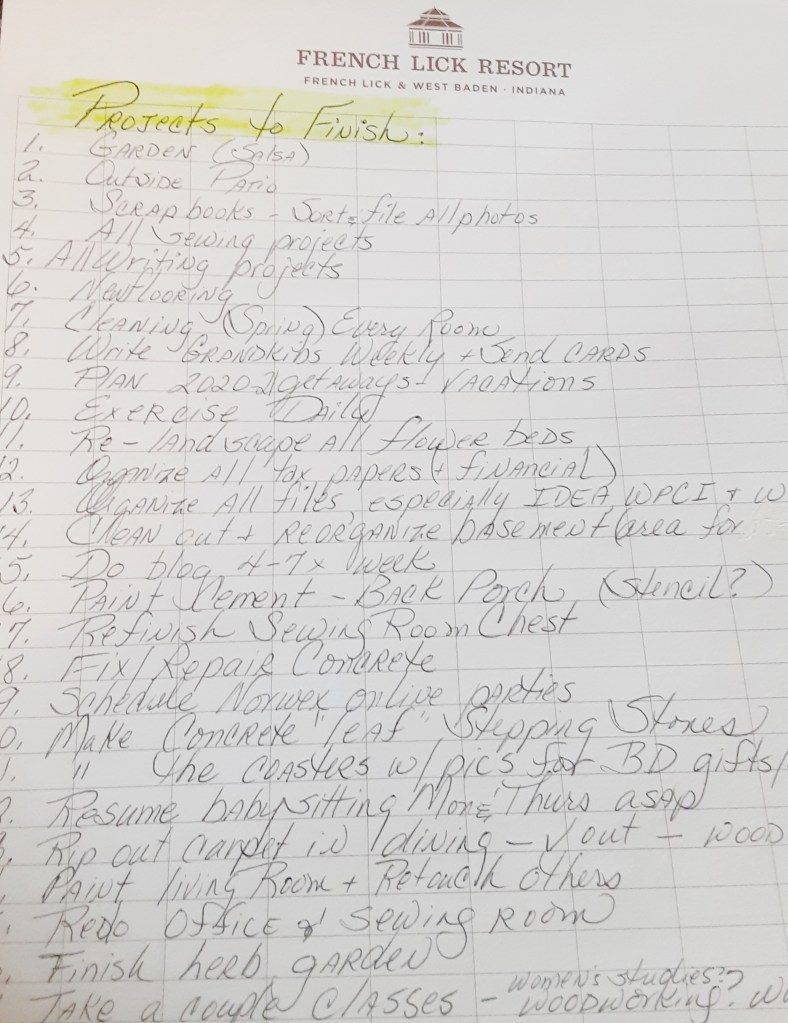 FRENCH LICK RESORT
FRENCH LICK & WEST BADEN · INDIANA
Projects to Finish:
1. GARDEN (SALSA)
2. Outside Patio
3. SCRAPbooks - Sort & file All photos
4. All sewing projects
5. All Writing projects
6. New flooring
7. Cleaning (Spring) Every Room
8. Write GRANDKIDS Weekly + Send CARDS
9. PLAN 2020-21 getaways - VACATIONS
10. Exercise Daily
11. Re-landscape All flower beds
12. Organize All tax papers (+ financial)
13. Organize All files, especially IDEA, WPCI + W
14. Clean out + REORGANIZE basement (area for
5. Do blog 4-7x week
6. PAINT Cement - BACK Porch (stencil?)
7. Refinish Sewing Room Chest
8. Fix/Repair Concrete
9. Schedule Norwex online parties
0. Make Concrete "leaf" Stepping Stones
1. " the COASTERS w/pics for BD gifts/
2. Resume babysitting Mon & Thurs asap
3. Rip out carpet in dining - out - WOOD
PAINT living Room + Retouch others
Redo Office & Sewing Room
Finish herb GARDEN
women's studies??
TAKE a couple Classes - woodworking? W